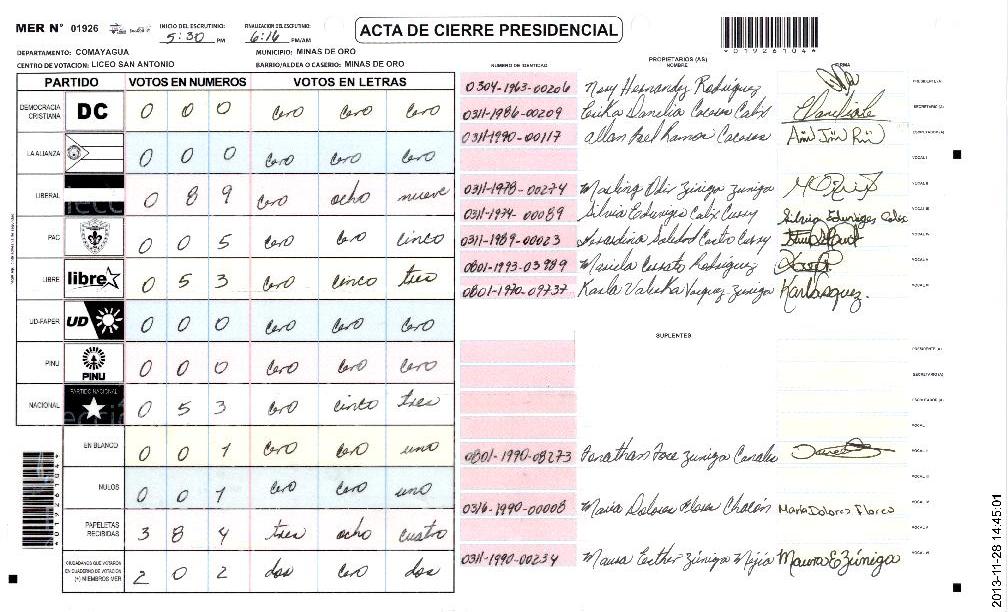 MER Nº 01926 INICIO DEL ESCRUTINIO: 5:30 PM FINALIZACION DEL ESCRUTINIO: 6:16 PM/AM
ACTA DE CIERRE PRESIDENCIAL
*01926104*
DEPARTAMENTO: COMAYAGUA MUNICIPIO: MINAS DE ORO
CENTRO DE VOTACION: LICEO SAN ANTONIO BARRIO/ALDEA O CASERIO: MINAS DE ORO
PARTIDO VOTOS EN NUMEROS VOTOS EN LETRAS
DEMOCRACIA CRISTIANA DC 0 0 0 Cero Cero Cero
LA ALIANZA 0 0 0 Cero Cero Cero
LIBERAL 0 8 9 Cero ocho nueve
PAC 0 0 5 Cero Cero cinco
LIBRE libre 0 5 3 Cero Cinco tres
UD-FAPER UD 0 0 0 Cero Cero Cero
PINU PINU 0 0 0 Cero Cero Cero
NACIONAL PARTIDO NACIONAL 0 5 3 Cero cinco tres
EN BLANCO 0 0 1 Cero Cero uno
NULOS 0 0 1 Cero Cero uno
PAPELETAS RECIBIDAS 3 8 4 tres ocho cuatro
CIUDADANOS QUE VOTARON EN CUADERNO DE VOTACION (+) MIEMBROS MER 2 0 2 dos Cero dos
PROPIETARIOS (AS)
NUMERO DE IDENTIDAD NOMBRE FIRMA
0304-1963-00206 Nery Hernandez Rodriguez PRESIDENTE(A)
0311-1986-00209 Erika Danelia Caceres Calix SECRETARIO(A)
0311-1990-00117 Allan Ramos Caceres ESCRUTADOR(A)
VOCAL I
0311-1978-00274 Marling Zuniga Zuniga VOCAL II
0311-1974-00089 Silvia Eduviges Calix VOCAL III
0311-1989-00023 Saludad Castro VOCAL IV
0801-1993-03989 Mariela Rodriguez VOCAL V
0801-1970-09737 Karla Valeska Vasquez Zuniga Karla Vasquez. VOCAL VI
SUPLENTES
PRESIDENTE (A)
SECRETARIO(A)
ESCRUTADOR(A)
VOCAL I
0801-1990-08273 Jonathan Jose Zuniga Canales VOCAL II
VOCAL III
0316-1990-00008 Maria Dolores Flores Chacón Maria Dolores Flores VOCAL IV
VOCAL V
0311-1990-00234 Maura Esther Zúniga Mejia Maura E Zúniga VOCAL VI
*01926104*
2013-11-28 14:45:01